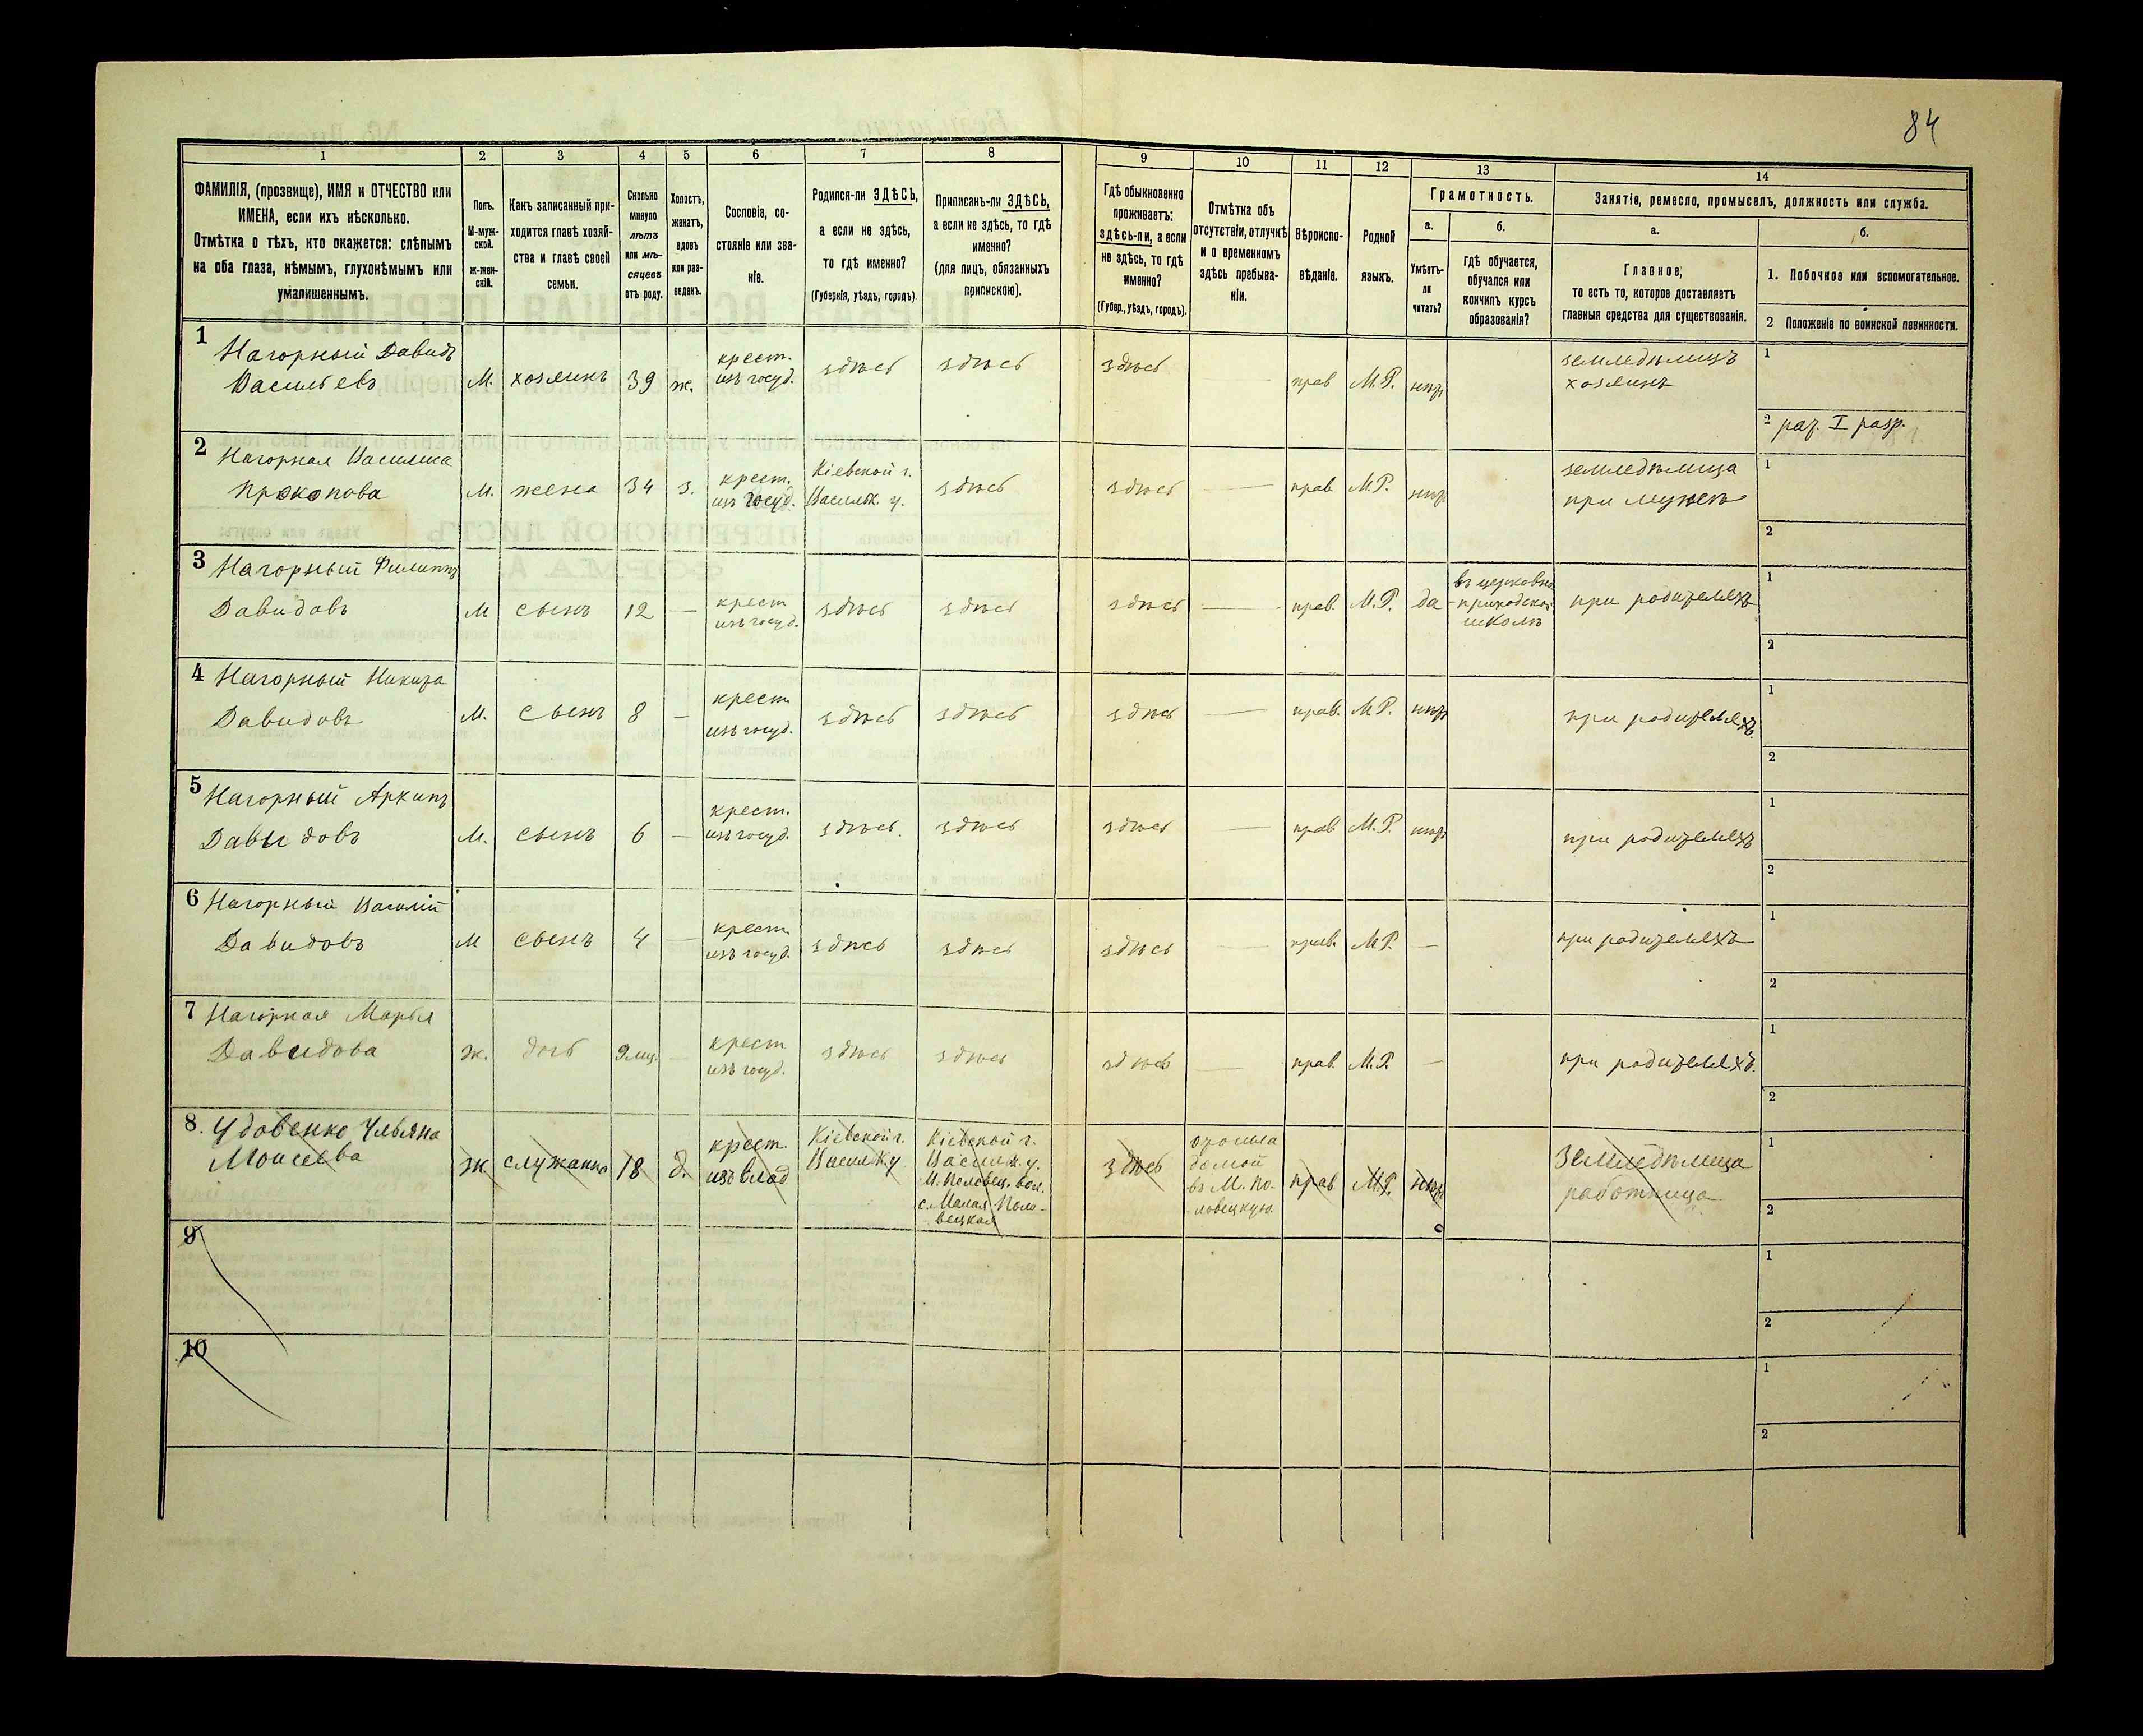 84
1 2 3 4 5 6 7 8 9 10 11 12 13 14
ФАМИЛІЯ, (прозвище), ИМЯ и ОТЧЕСТВО или
ИМЕНА, если ихъ нѣсколько.
Отмѣтка о тѣхъ, кто окажется: слѣпымъ
на оба глаза, нѣмымъ, глухонѣмымъ или
умалишеннымъ.
Полъ.
М-муж-
ской.
ж-жен-
скій.
Какъ записанный при-
ходится главѣ хозяй-
ства и главѣ своей
семьи.
Сколько
минуло
лѣтъ
или мѣ-
сяцевъ
отъ роду.
Холостъ,
женатъ,
вдовъ
или раз-
веденъ.
Сословіе, со-
стояніе или зва-
ніе.
Родился-ли ЗДѢСЬ,
а если не здѣсь,
то гдѣ именно?
(Губернія, уѣздъ, городъ).
Приписанъ-ли ЗДѢСЬ,
а если не здѣсь, то гдѣ
именно?
(для лицъ, обязанныхъ
припискою).
Гдѣ обыкновенно
проживаетъ:
здѣсь-ли, а если
не здѣсь, то гдѣ
именно?
(Губер., уѣздъ, городъ).
Отмѣтка объ
отсутствіи, отлучкѣ
и о временномъ
здѣсь пребыва-
ніи.
Вѣроиспо-
вѣданіе.
Родной
языкъ.
Грамотность.
а.
Умѣетъ-
ли
читать?
б.
гдѣ обучается,
обучался или
кончилъ курсъ
образованія?
Занятіе, ремесло, промыселъ, должность или служба.
а.
Главное,
то есть то, которое доставляетъ
главныя средства для существованія.
б.
1. Побочное или вспомогательное.
2 Положеніе по воинской повинности.
1
Нагорный Давидъ
Васильевъ
М.
хозяинъ
39
ж.
крест.
изъ госуд.
здѣсь
здѣсь
здѣсь
прав
М.Р.
нѣтъ
земледѣлецъ
хозяинъ
1
2 рат. I разр.
2
Нагорная Василиса
Прокопова
М.
жена
34
з.
крест.
изъ госуд.
Кіевской г.
Васильк. у.
здѣсь
здѣсь
прав.
М.Р.
нѣтъ
земледѣлица
при мужѣ
1
2
3
Нагорный Филиппъ
Давидовъ
М
сынъ
12
—
крест
изъ госуд.
здѣсь
здѣсь
здѣсь
прав.
М.Р.
да
въ церковно
-приходской
школѣ
при родителяхъ
1
2
4
Нагорный Никита
Давидовъ
М.
сынъ
8
—
крест
изъ госуд.
здѣсь
здѣсь
здѣсь
прав.
М.Р.
нѣтъ
при родителяхъ
1
2
5
Нагорный Архипъ
Давыдовъ
М.
сынъ
6
—
крест.
изъ госуд.
здѣсь.
здѣсь
здѣсь
прав
М.Р.
нѣтъ
при родителяхъ
1
2
6
Нагорный Василій
Давидовъ
М
сынъ
4
—
крест
изъ госуд.
здѣсь
здѣсь
здѣсь
прав.
М.Р.
—
при родителяхъ
1
2
7
Нагорная Марья
Давидова
ж.
дочь
9 мѣс.
—
крест
изъ госуд.
здѣсь
здѣсь
здѣсь
прав.
М.Р.
—
при родителяхъ.
1
2
8.
Удовенко Ульяна
Моисеева
ж
служанка
18
д.
крест.
изъ влад
Кіевской г.
Васильк у
Кіевской г.
Васильк. у.
М. Половец. вол.
с. Малая Поло-
вецкая
здѣсь
отошла
домой
въ М. По-
ловецкую
прав
М.Р.
нѣтъ
Земледѣлица
работница
1
2
9
1
2
10
1
2